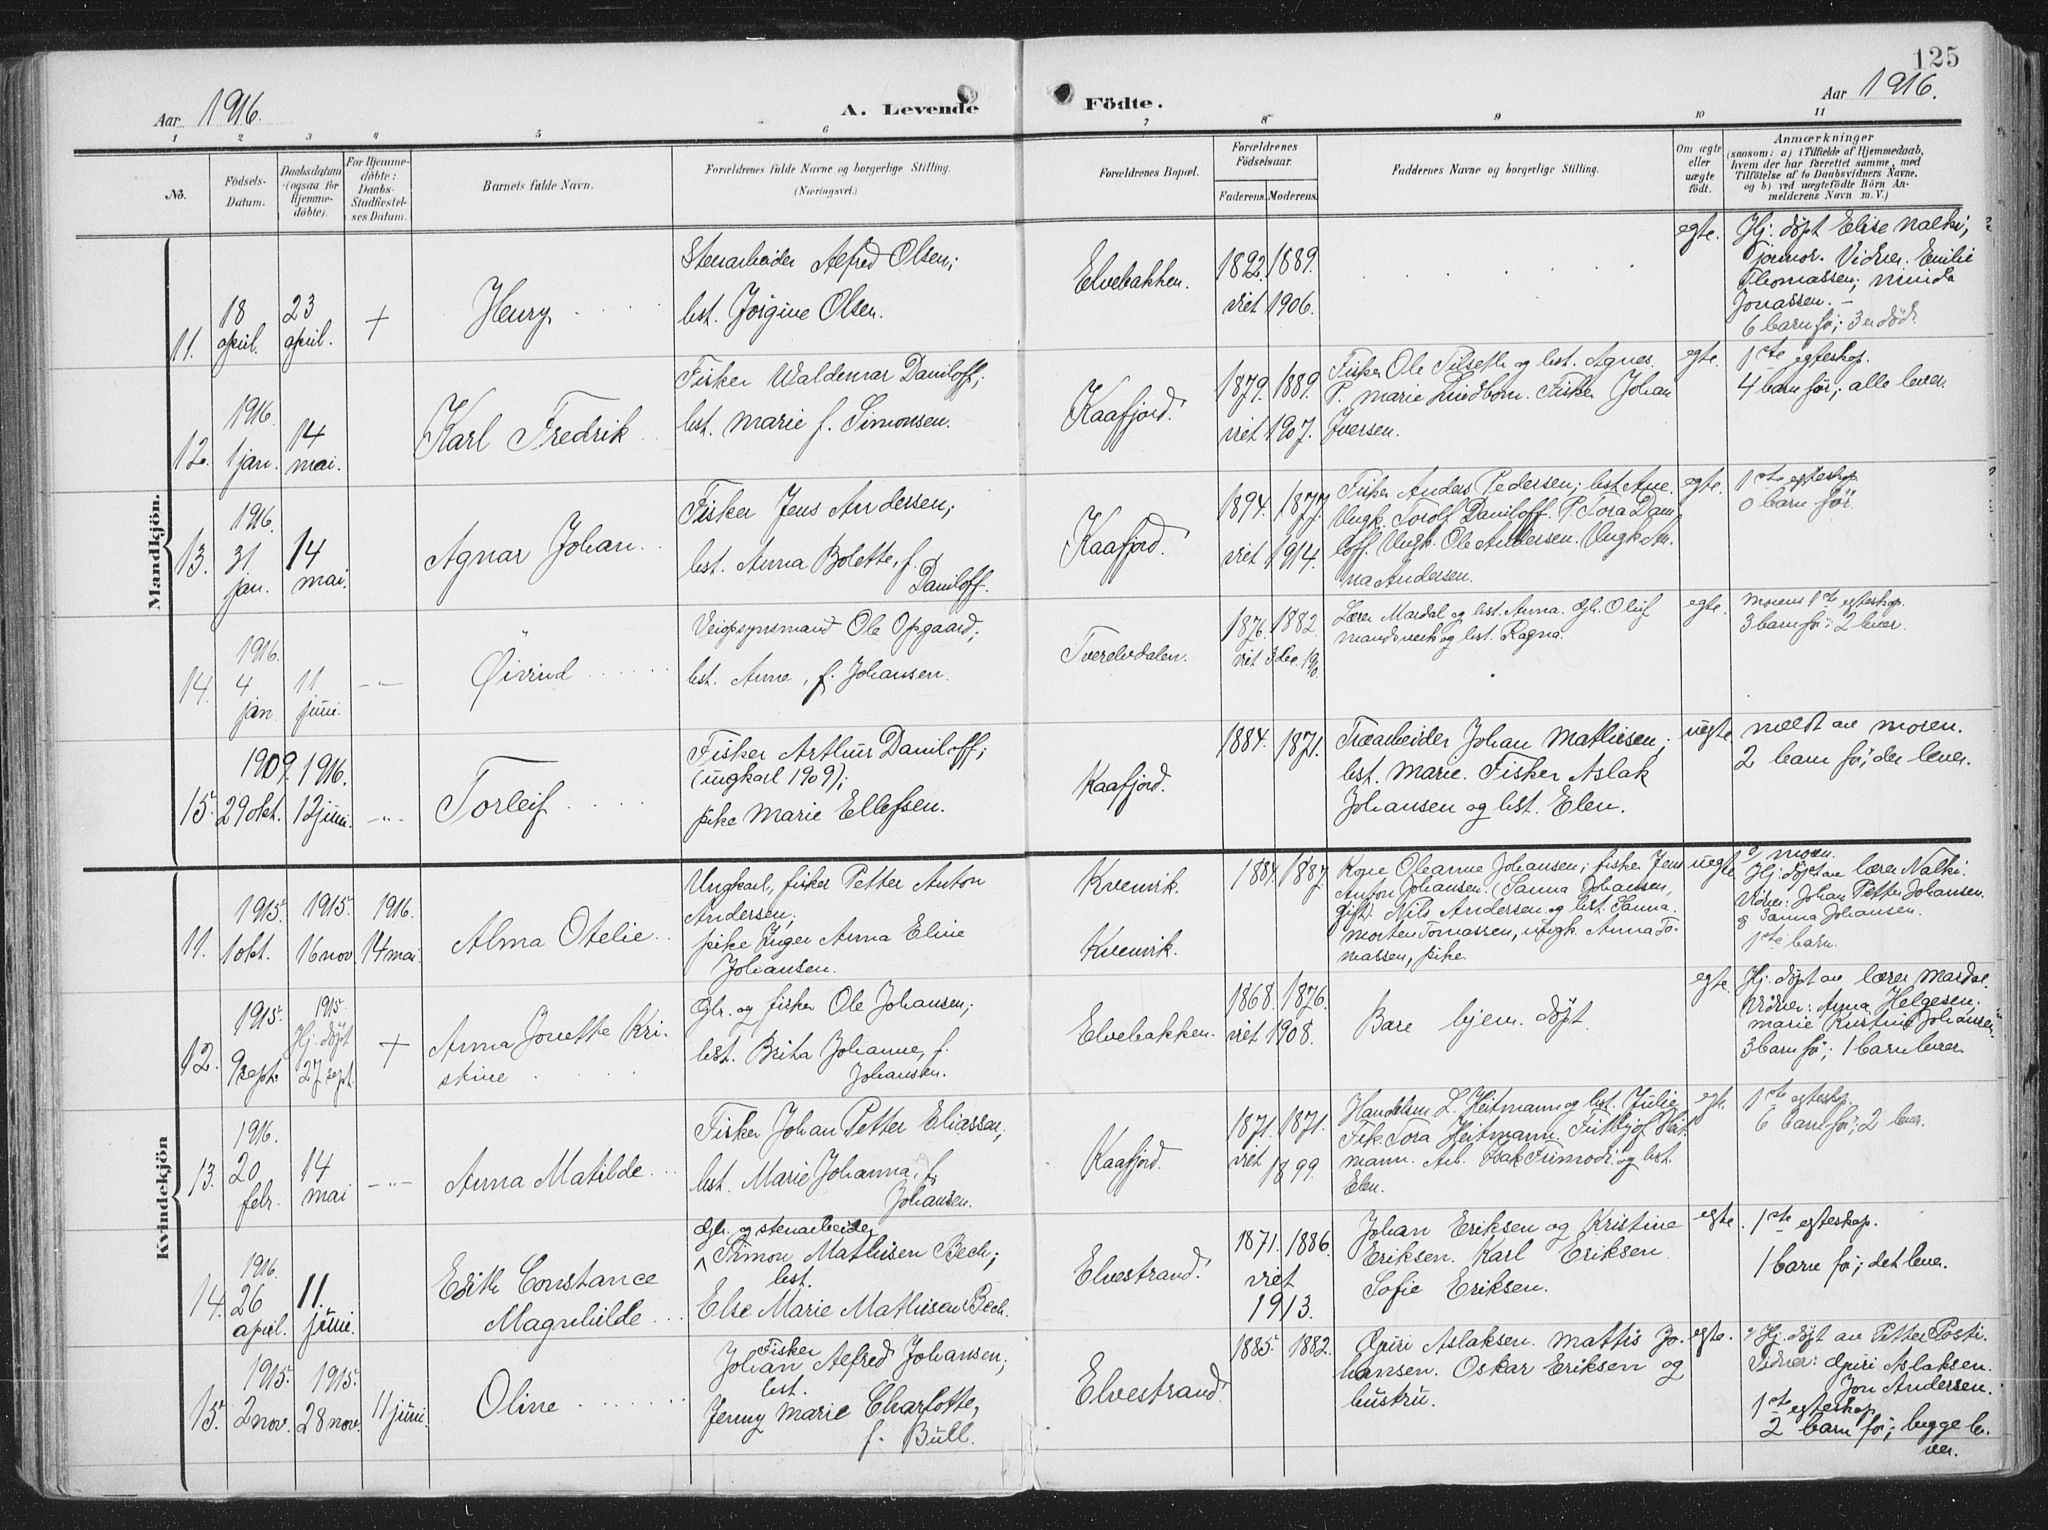 125
Aar 1916.
A. Levende Födte.
Aar 1916.
1 2 3 4 5 6 7 8 9 10 11
No.
Födsels-Datum.
Daabsdatum (ogsaa for Hjemme-döbte).
For Hjemme-döbte: Daabs-Stadfæstel-ses Datum.
Barnets fulde Navn.
Forældrenes fulde Navne og borgerlige Stilling.
(Næringsvei.)
Forældrenes Bopæl.
Forældrenes Födselsaar.
Faderens. Moderens.
Faddernes Navne og borgerlige Stilling.
Om ægte eller uægte födt.
Anmærkninger
(saasom: a) i Tilfælde af Hjemmedaab, hvem der har forrettet samme, med Tilföielse af to Daabsvidners Navne, og b) ved uægtefödte Börn An-melderens Navn m. V.)
Mandkjön.
11. 18 april. 23 april. +
Henry
Stenarbeider Alfred Olsen;
best. Jörgine Olsen.
Elvebakken.
1892. 1889.
viet 1906.
egte.
Hj. döpt Elise
Vidner. Emilie
Thomassen;
Jonassen. –
6 barn för; 3 er död.
12. 1916. 1 jan. 14 mai.
Karl Fredrik
Fisker Waldemar Daniloff;
best. Marie f. Simonsen.
Kaafjord.
1879. 1889.
viet 1907.
Fisker Ole Tilseth og best. Agnes.
P. Marie Lindbom. Fisker Johan
Iversen.
egte.
1ste egteskap.
4 barn för; alle lever.
13. 1916. 31 jan. 14 mai.
Agnar Johan
Fisker Jens Andersen;
best. Anna Bolette, f.
Daniloff.
Kaafjord.
1894. 1877.
viet 1914.
Fisker Anders Pedersen; best. Ane.
Ungk. Torolf Daniloff. P. Tora Dani
loff. Ungk. Ole Andersen. Ungk. An
na Andersen.
egte.
1ste egteskap
0 barn för.
14. 1916. 4 jan. 11 juni. –"–
Öivind
Veiopsynsmand Ole Opgaard;
best. Anna, f. Johansen.
Tverelvdalen.
1876. 1882.
viet 3 dec. 190
Lærer Mardal og best. Anna. Gbr. Oluf
mandsverk og best. Ragna.
egte.
Morens 1ste egteskap.
3 barn för: 2 lever.
15. 1909. 29 okt. 1916. 12 juni. –"–
Torleif
Fisker Arthur Daniloff;
(ungkarl 1909);
pike Marie Ellefsen.
Kaafjord.
1884. 1871.
Træarbeider Johan Mathisen;
best. Marie. Fisker Aslak
Johansen og best. Elen.
uegte
meldt av moren.
2 barn för; der lever.
Kvindekjön
11. 1915. 1 okt. 1915. 16 nov. 1916. 14 mai.
Alma Otelie
Ungkarl, fisker Petter Anton
Andersen;
pike Inger Anna Eline
Johansen.
Kvenvik.
Kvenvik.
1884. 1887.
Kone Oleanne Johansen; fisker Jens
Anton Johansen. (Sanna Johansen,
gift. Nils Andersen og best. Sanna.
Morten Tomassen, ungk. Anna To-
massen, pike.
uegte
moren.
Hj. döpt av lærer Nalki.
Vidner: Johan Petter Johansen.
Sanna Johansen.
1ste barn.
12. 1915. 9 sept. 1915. Hj. döpt 27 sept. +
Anna Jonette Kri-
stine
Gbr. og fisker Ole Johansen;
best. Brita Johanne, f.
Johansen.
Elvebakken.
1868. 1876.
viet 1908.
Bare hjem. döpt.
egte.
Hj. döpt av lærer Mardal.
Vidner: Anna Helgesen;
Marie Kristine Johansen
3 barn för; 1 barn lever.
13. 1916. 20 febr. 14 mai –"–
Anna Matilde
Fisker Johan Petter Eliassen;
best. Marie Johanna, f.
Johansen.
Kaafjord.
1871. 1871.
viet 1899.
Handelsm. L. Heitmann og best. Julie
Frk. Tora Heitmann. Fritjof Heit
mann. Arb. Isak og best.
Elen.
egte.
1ste egteskap.
6 barn för; 2 lever.
14. 1916. 26 april. 11. juni.
Edith Constance
Magnhilde
Gbr. og stenarbeider
Simon Mathisen Bech;
best.
Else Marie Mathisen Bech.
Elvestrand.
1871. 1886.
viet 1913.
Johan Eriksen og Kristine
Eriksen. Karl Eriksen
Sofie Eriksen.
egte.
1ste egteskap.
1 barn för; det lever.
15. 1915. 2 nov. 1915. 28 nov. 11 juni.
Oline
Fisker
Johan Alfred Johansen;
best.
Jenny Marie Charlotte,
f. Bull.
Elvestrand.
1885. 1882.
Guri Aslaksen. Mattis Jo-
hansen. Oskar Eriksen og
hustru.
egte.
Hj. döpt av Petter Posti.
Vidner: Guri Aslaksen.
Jon Andersen.
1ste egteskap
2 barn för; begge le-
ver.